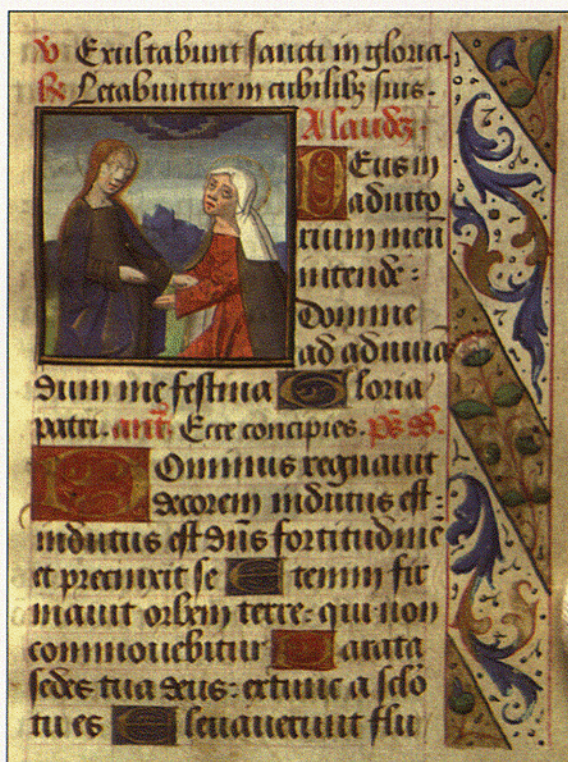 V Exultabunt sancti in gloria.
R Letabuntur in cubilibꝫ suis.
A laudꝫ.
Deus in
adiuto
rium meū
intende:
Domine
ad adiuuā
dum me festina Gloria
patri. an̄t. Ecce concipies. p̄s
Dominus regnauit
decorem indutus est:
indutus est dn̄s fortitudinē
et precinxit se Etenim fir
mauit orbem terre: qui non
commouebitur Parata
sedes tua deus: extunc a sclō
tu es Eleuauerunt flu